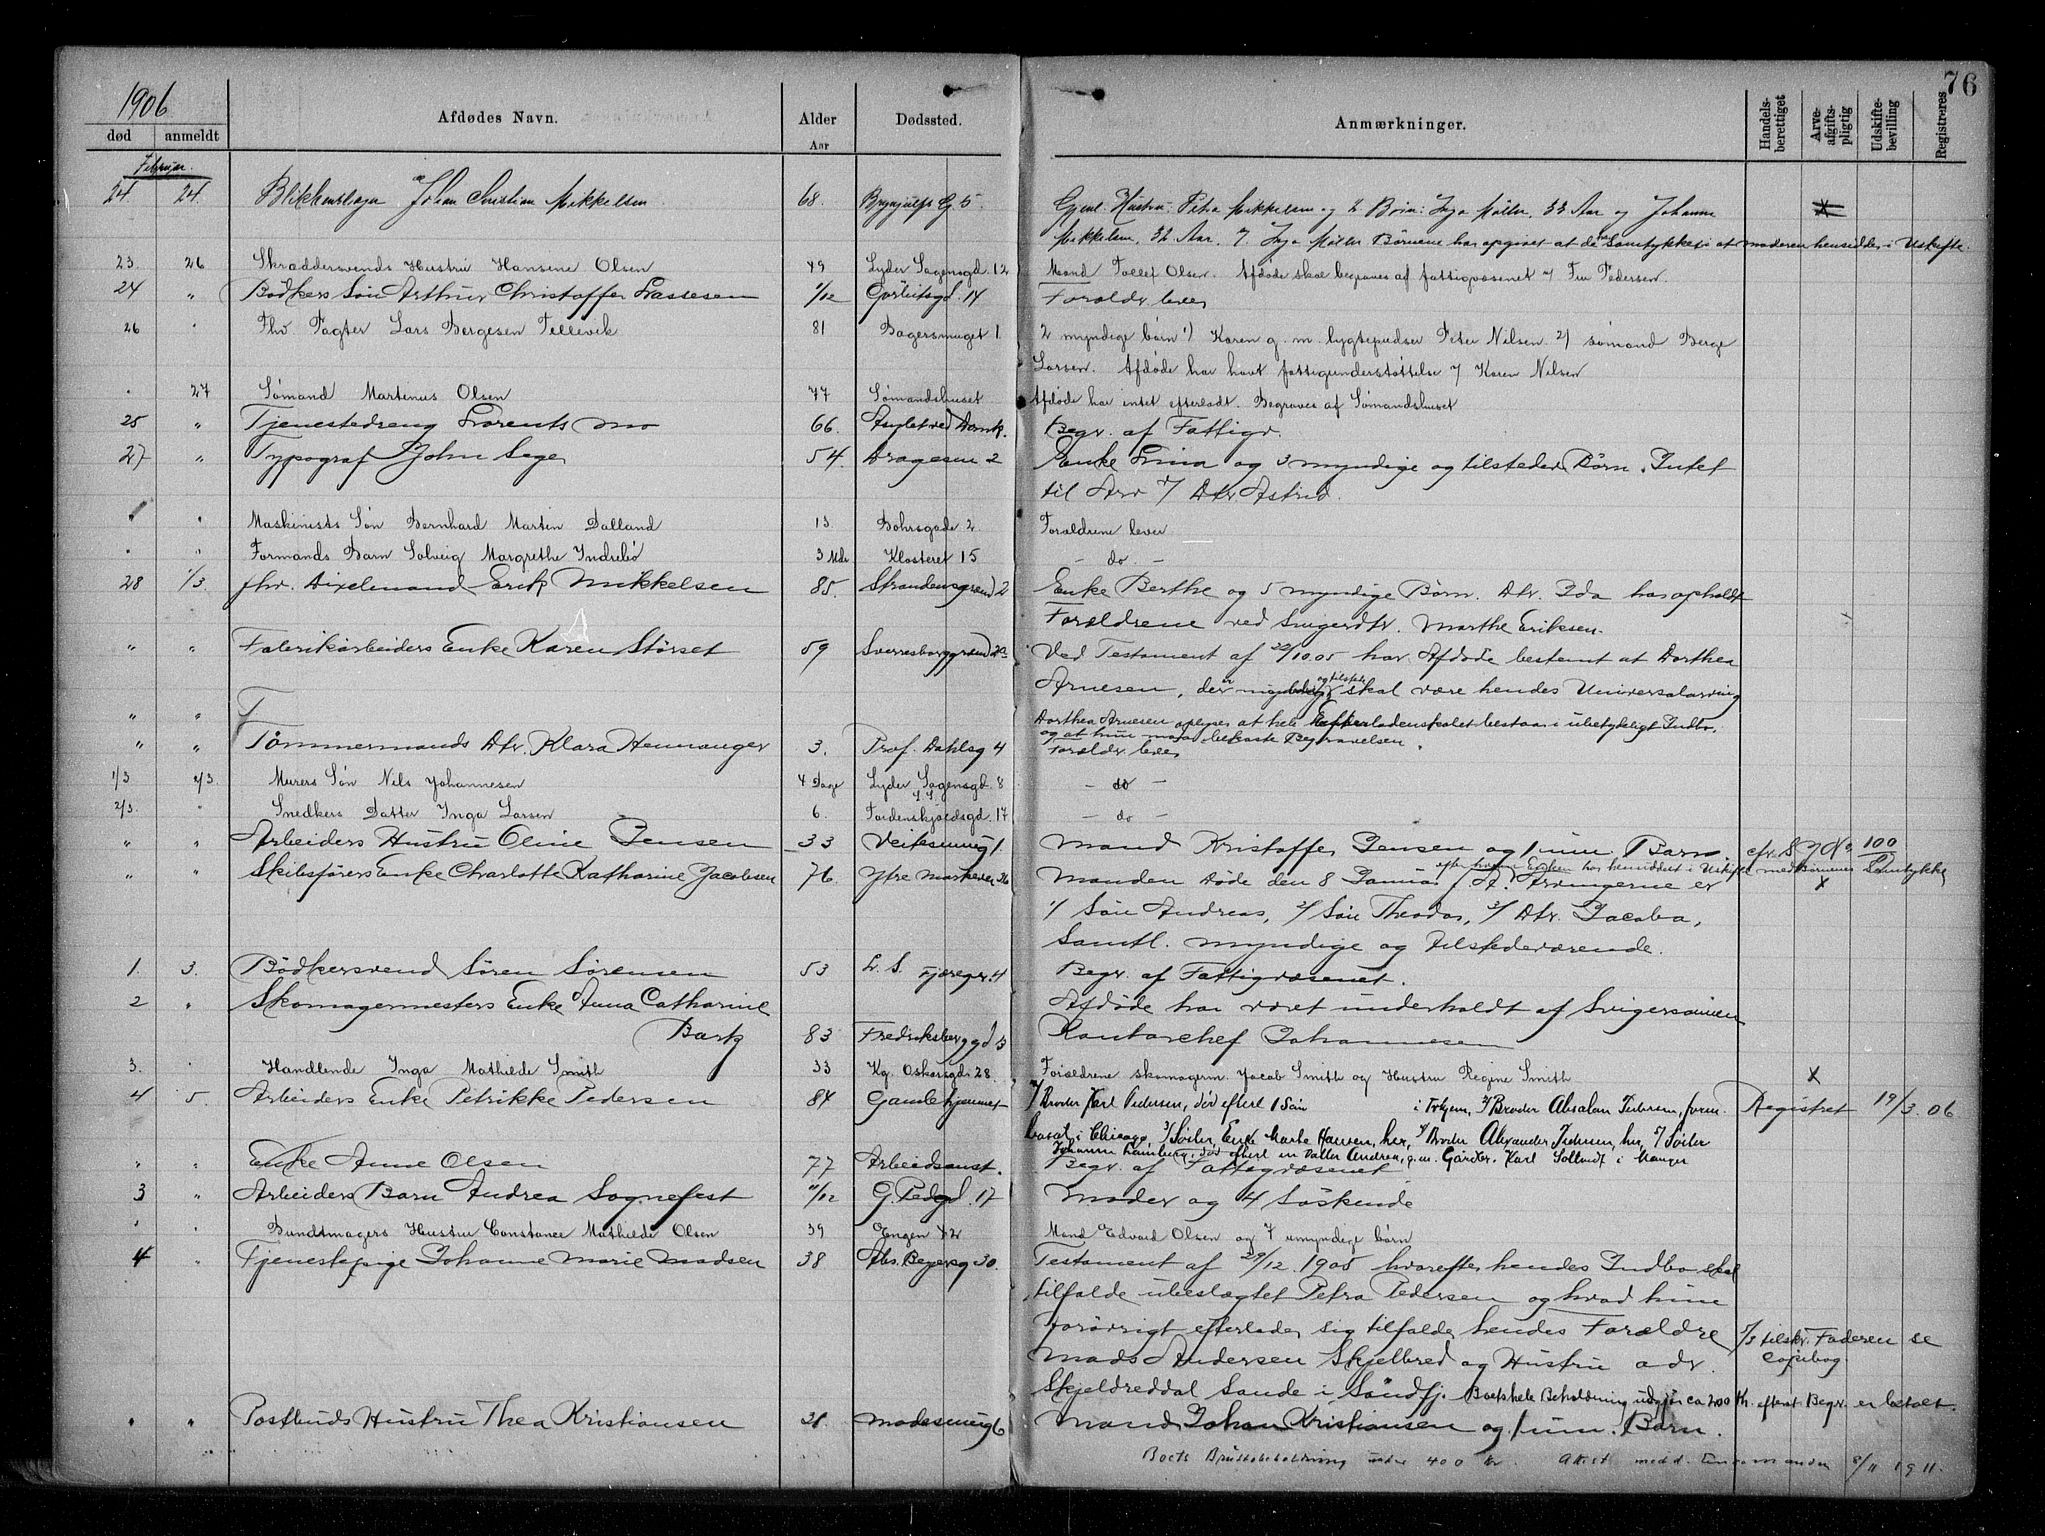 76
1906
død anmeldt Afdødes Navn. Alder Aar Dødssted. Anmærkninger. Handelsberettiget Arveafgiftspligtig Udskiftebevilling Registreres
Februar.
24. 24. Blikkenslager Johan Christian Mikkelsen 68. Brynjulfs G 5 Gjenl. Hustru: Petra Mikkelsen og 2 Børn: Inga Møller, 33 Aar og Johanne
Mikkelsen, 32 Aar. Inga Møller Børnene har opgivet at de har Samtykket i at moderen hensidder i Uskifte.
23. 26 Skræddersvends Hustru Hansine Olsen 49 Lyder Sagensgd. 12 Mand Tollef Olsen. Afdøde skal begraves af fattigvæsenet Pedersen.
24 " Bødkers Søn Arthur Christoffer Lassesen 1/12 Gørbitsgd. 14 Forældr. lever
26 " Fhv. Fagter Lars Bergesen Tellevik 81 Bagersmuget 1 2 myndige børn 1) Karen g. m. lygtepudser Peter Nilsen. 2) sømand Berge
Larsen. Afdøde har havt fattigunderstøttelse Karen Nilsen
" 27 Sømand Martinus Olsen 77 Sømandshuset Afdøde har intet efterladt. Begraves af Sømandshuset
25 " Tjenestedreng Lorents Mo 66. Asylet ved Domk. Begr. af Fattigv.
27 " Typograf John Sege 54. Dragesm 2 Enke Lina og 3 myndige og tilstedev. Børn. Intet
til Arv Dtr Astrid.
" " Maskinists Søn Bernhard Martin Dalland 13 Bohrsgade 2 Forældrene lever
" " Formands Barn Solveig Margrethe Indrebø 3 Mdr Klosteret 15 - do -
28 1/3. fhv. Dixelmand Erik Mikkelsen 85. Strandensgrænd 2 Enke Berthe og 5 myndige Børn. Dtr. Ida har opholdt
Forældrene ved Svigerdtr. Marthe Eriksen.
" " Fabrikarbeiders Enke Karen Störset 59 Sverresborggrænd Ved Testament af 22/10 05 har Afdøde bestemt at Dorthea
Arnesen, der er myndig og tilstede skal være hendes Universalarving
" " T Dorthea Arnesen oplyser at hele Efterladenskabet bestaar i ubetydeligt Indbo.
og at hun maa bekoste Begravelsen.
" " Tömmermands Dtr. Klara Hennanger 3. Prof. Dahlsg 4 Forældr. lever
1/3 2/3 Murers Søn Nils Johannesen 4 Dage Lyder Sagensgd. 8 - do -
2/3. " Snedkers Datter Inga Larsen 6. Tordenskjoldsgd. 17 - do -
" " Arbeiders Hustru Oline Jensen 33 Veiksmug 1. Mand Kristoffer Jensen og 1 um. Barn. cfr. S 9 No 100
" " Skibsförers Enke Charlotte Katharine Jacobsen 76. Ytre Markevei 26 Manden døde den 8 Januar f. A. efter hvem Enken har hensiddet i Uskifte med Børnenes Samtykke Arvingerne er
1/ Søn Andreas, 2/ Søn Theodor, 3/ Dtr. Jacoba,
Samtl. myndige og tilstedeværende.
1. 3. Bödkersvend Søren Sørensen 53 L. S. Tjæregr. 4 Begr. af Fattigvæsenet.
2 " Skomagermesters Enke Anna Catharine
Bark 83 Fredriksberggd 13 Afdøde har været underholdt af Svigersønnen
Kontorchef Johannesen
3. " Handlende Inga Mathilde Smith 33 Kg. Oskarsgd. 28. Forældrene skomagerm. Jacob Smith og Hustru Regine Smith x
4 5. Arbeiders Enke Petrikke Pedersen 84 Gamlehjemmet 1/ Broder Karl Pedersen, død efterl 1 Søn i Trhjem, 2/ Broder Absalon Pedersen, foren. Registret 19/3. 06
bosat i Chicago, 3/ Søster, Enke Marte Hansen, her, 4/ Broder Alexander Pedersen, her, 5/ Søster
Johanne Lemberg, død efterl en datter Andrea, g. m. Gårdbr. Karl Solland i Manger
" " Enke Anne Olsen 77 Arbeidsanst. Begr. af Fattigvæsenet
3 " Arbeiders Barn Andrea Sognefest 11/12 G. Pedgd. 17 Moder og 4 Söskende
" " Bundtmagers Hustru Constance Mathilde Olsen 39 Engen 42 Mand Edvard Olsen og 7 umyndige børn
4 " Tjenestepige Johanne Marie Madsen 38 Abs. Beyersg 30. Testament af 29/12. 1905 hvorefter hendes Indbo skal
tilfalde ubeslægtet Petra Pedersen og hvad hun
forövrigt efterlader sig tilfalde hendes Forældre 5/3 tilskr. Faderen se copibog
Mads Andersen Skjelbred og Hustru adr.
Skjeldreddal Sande i Söndfj. Boets hele Beholdning udgjør ca 200 Kr. efterat Begr. er betalt.
" " Postbuds Hustru Thea Kristiansen 31. Madesmug 6 Mand Johan Kristiansen og 1 um. Barn.
Boets Bruttobeholdning under 400 kr. Attest medd. Enkemanden 8/11 1911.